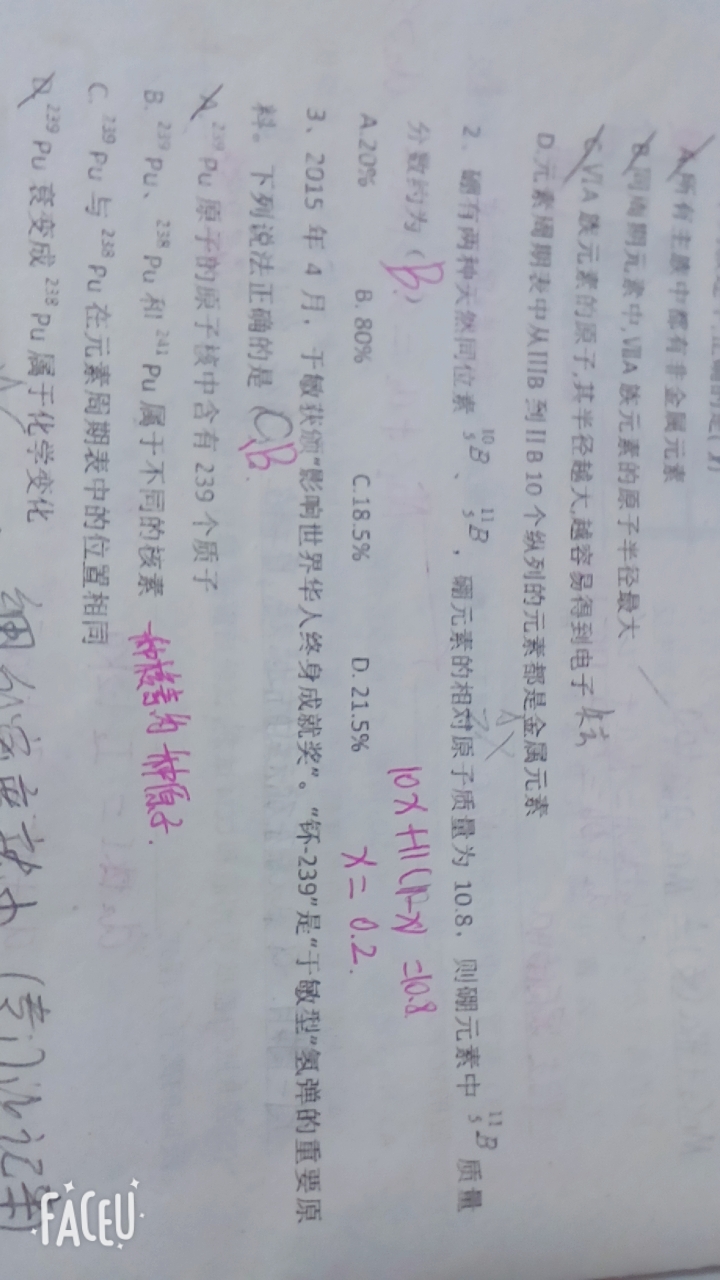 A.所有主族中都有非金属元素
B.同周期元素中,ⅦA 族元素的原子半径最大
C.ⅥA 族元素的原子,其半径越大,越容易得到电子
D.元素周期表中从ⅢB 到ⅡB 10 个纵列的元素都是金属元素
2、硼有两种天然同位素 ¹⁰₅B、¹¹₅B,硼元素的相对原子质量为 10.8,则硼元素中 ¹¹₅B 质量
分数约为(B)
10x+11(1-x)=10.8
x=0.2.
A.20% B.80% C.18.5% D.21.5%
3、2015 年 4 月,于敏获颁“影响世界华人终身成就奖”。“钚-239”是“于敏型”氢弹的重要原
料。下列说法正确的是(B
A. ²³⁹Pu 原子的原子核中含有 239 个质子
B. ²³⁹Pu、²³⁸Pu 和 ²⁴¹Pu 属于不同的核素 一种核素为一种原子.
C. ²³⁹Pu 与 ²³⁸Pu 在元素周期表中的位置相同
D. ²³⁹Pu 衰变成 ²³⁸Pu 属于化学变化
FACEU